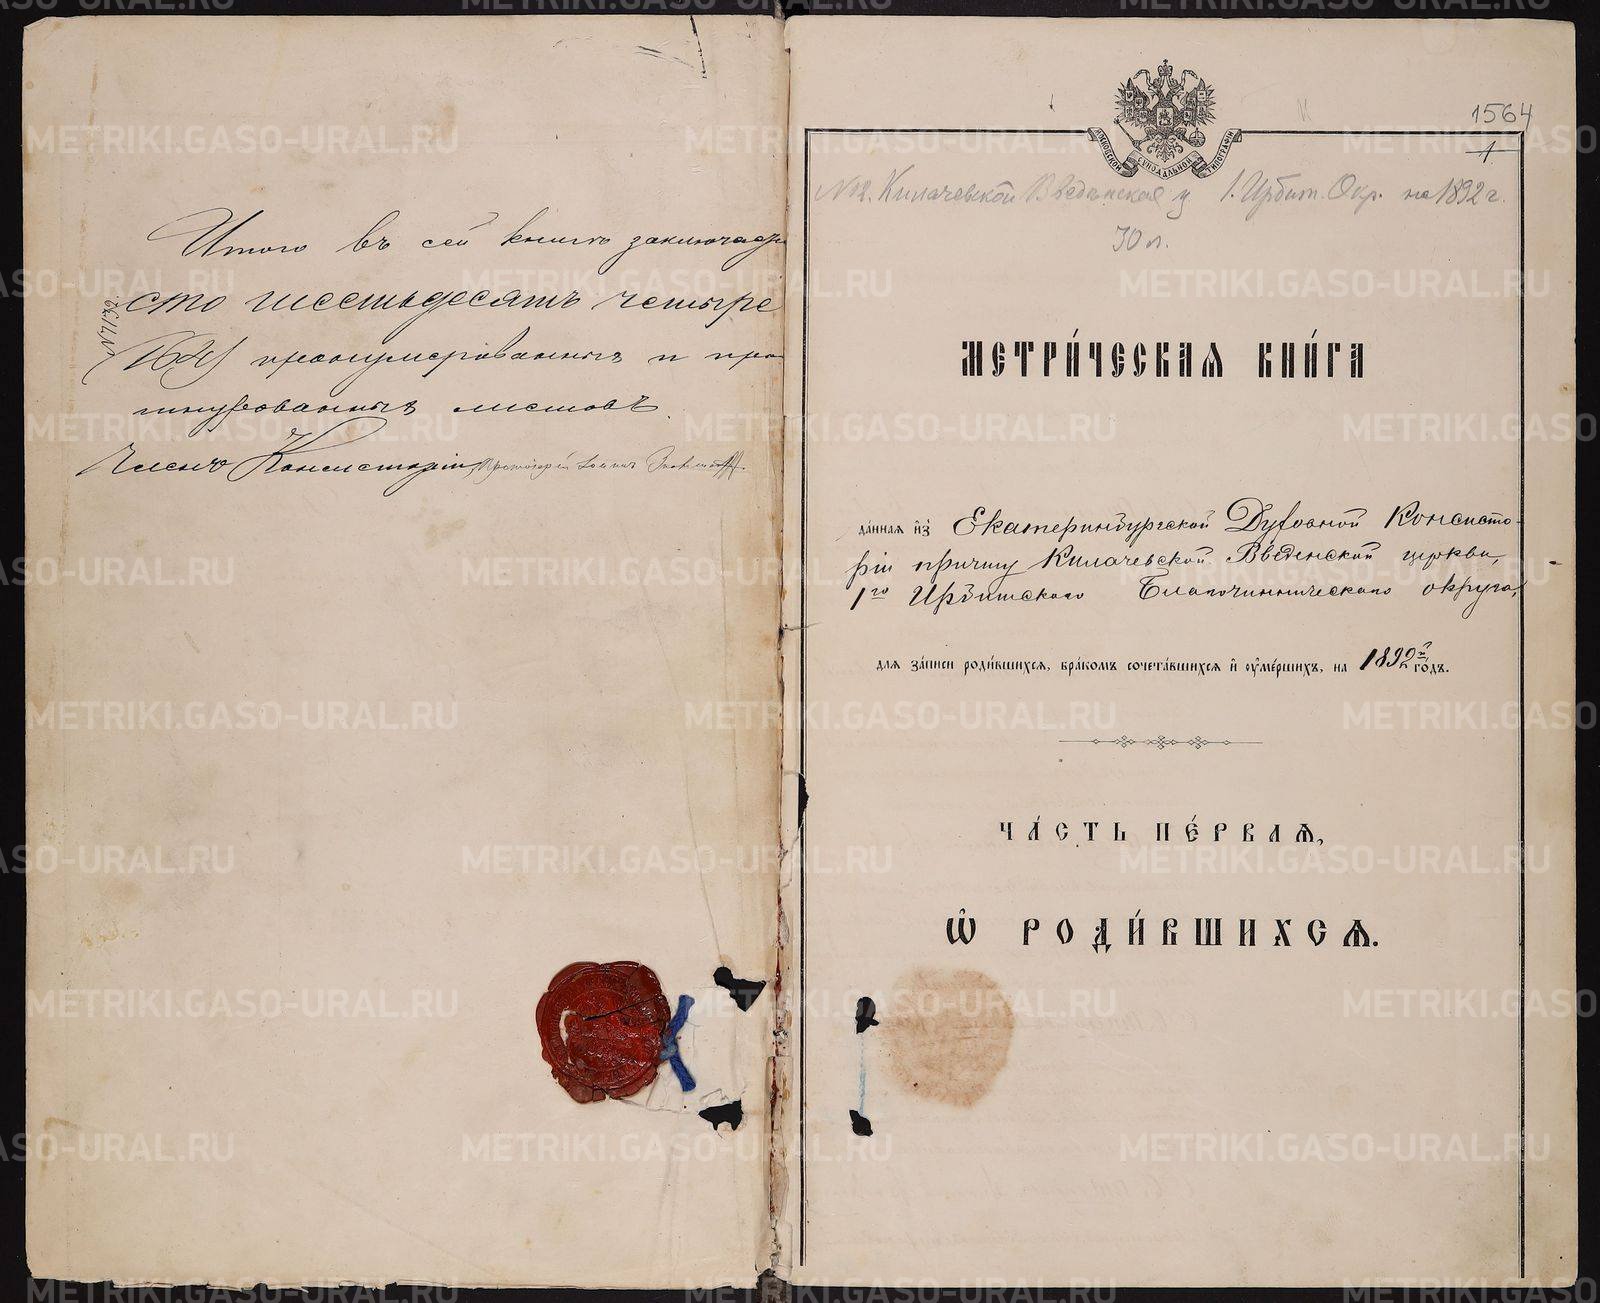 Итого въ сей книгѣ заключается
сто шестьдесятъ четыре
(164) пронумерованныхъ и про
шнурованныхъ листовъ.
Членъ Консисторіи, Протоіерей Іоаннъ
№7139.
1564
1
МОСКОВСКОЙ СѴНОДАЛЬНОЙ ТИПОГРАФІИ
№12. Килачевской Введенская ц 1. Ирбит. Окр. на 1892 г.
30 л.
МЕТРИ́ЧЕСКАЯ КНИ́ГА
да́нная и҆зъ Екатеринбургской Духовной Консисто-
ріи причту Килачевской Введенской церкви,
1го Ирбитского Благочинническаго округа,
для за́писи роди́вшихся, бра́комъ сочета́вшихся и҆ ᲂу҆ме́ршихъ, на 1892й го́дъ.
ЧА́СТЬ ПЕ́РВАЯ,
Ѽ РОДИ́ВШИХСЯ.
METRIKI.GASO-URAL.RU